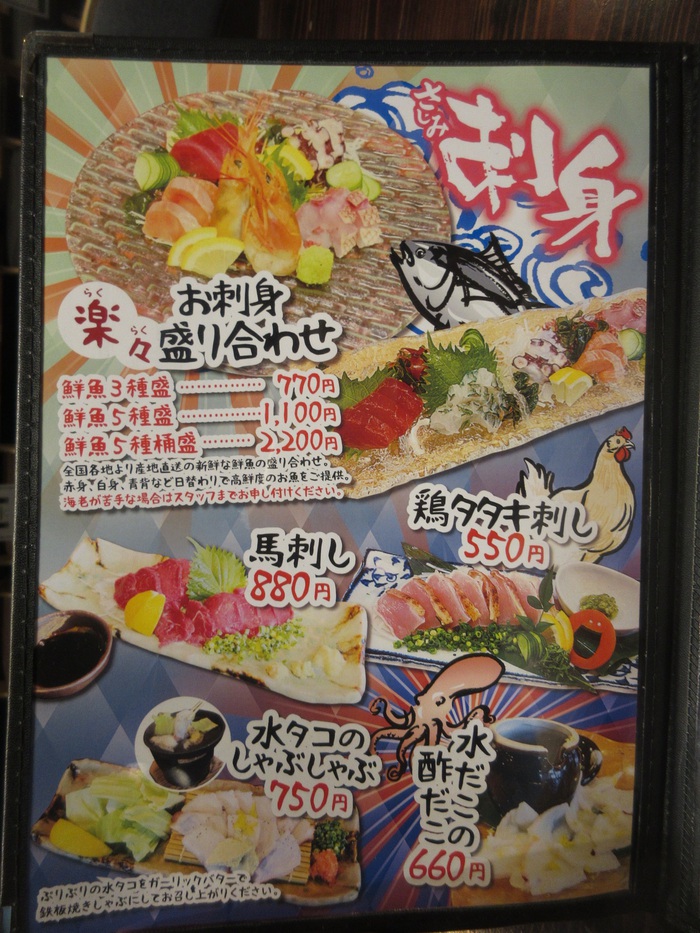 さしみ
刺身
らく
楽
らく
々
お刺身
盛り合わせ
鮮魚3種盛 770円
鮮魚5種盛 1,100円
鮮魚5種桶盛 2,200円
全国各地より産地直送の新鮮な鮮魚の盛り合わせ。
赤身、白身、青背など日替わりで高鮮度のお魚をご提供。
海老が苦手な場合はスタッフまでお申し付けください。
鶏タタキ刺し
550円
馬刺し
880円
水タコの
しゃぶしゃぶ
750円
ぷりぷりの水タコをガーリックバターで
鉄板焼きしゃぶにしてお召し上がりください。
水だこの
酢だこ
660円